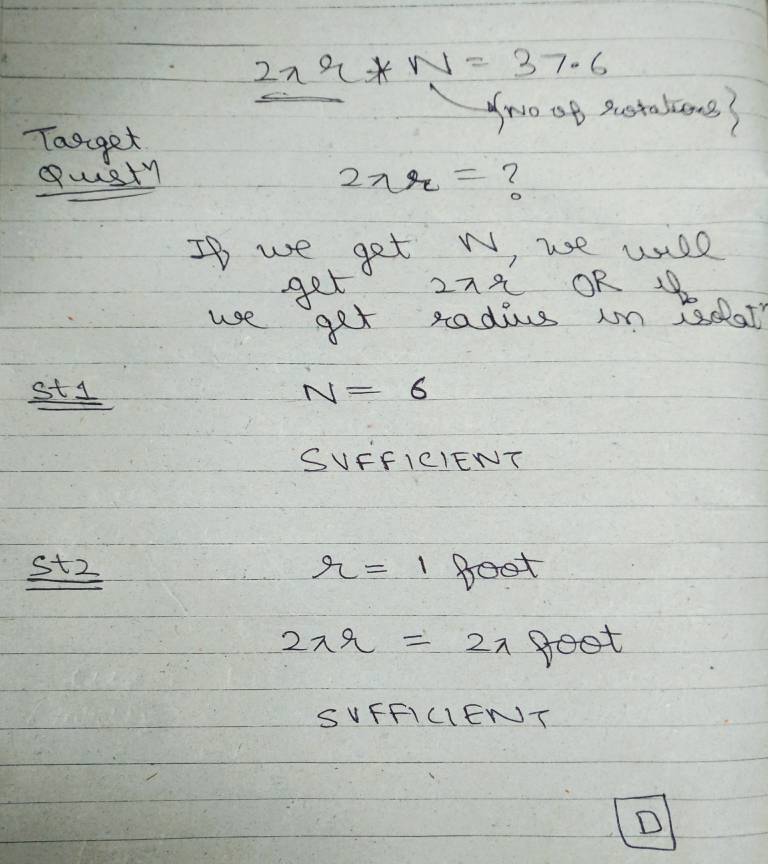 2πr * N = 37.6
{No of rotations}
Target
Questn
2πr = ?
If we get N, we will
get 2πr OR if
we get radius in isolatn
St1 N = 6
SUFFICIENT
St2 r = 1 foot
2πr = 2π foot
SUFFICIENT
D